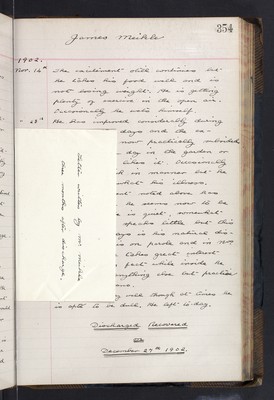 354
James Meikle
1902.
Nov. 14th The excitement still continues but
he takes his food well and is
not losing weight. He is getting
plenty of exercise in the open air.
Occasionally he wets himself.
" 28th He has improved considerably during
days and the ex-
now practically subsided
day in the garden or
likes it. Occasionally
in manner but he
what his illness
he seems now to be
is quiet, somewhat
speaks little but this
says is his natural dis-
on parole and is now
takes great interest
in fact while inside he
anything else but practise
well though at times he
is apt to be dull. He left to-day.
Discharged Recovered
on
December 27th 1902.
Letter written by Mr Meikle
two months after discharge.